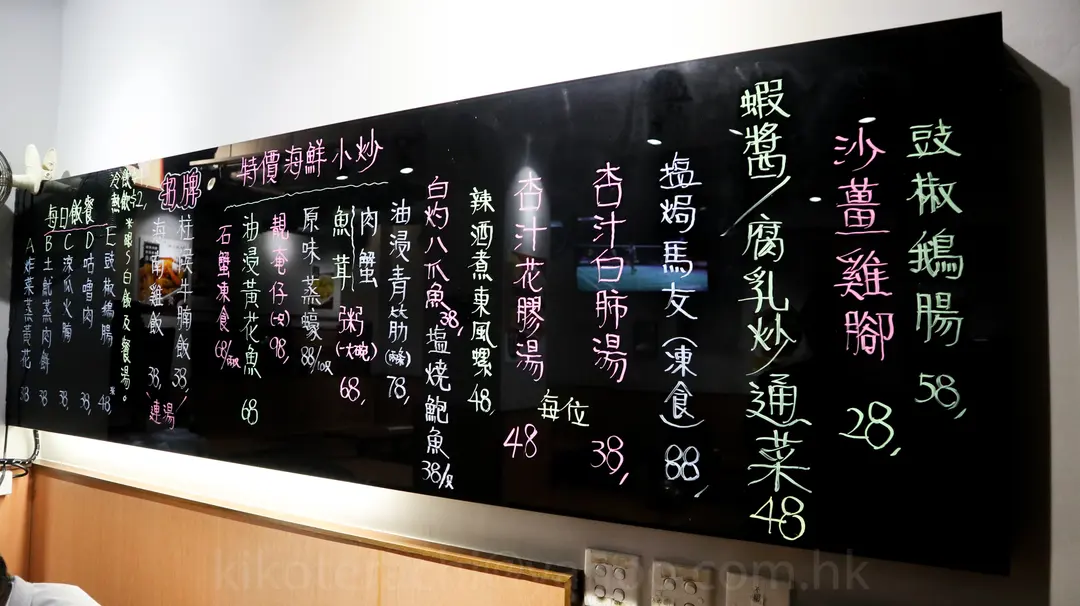 每日飯餐
A 炸菜蒸黃花 38
B 土魷蒸肉餅 38,
C 涼瓜火腩 38,
D 咕嚕肉 38,
E 豉椒鵝腸 48,
米眼S白飯及餐湯。
招牌
海南雞飯 38,
柱侯牛腩飯 38,
連湯
特價海鮮小炒
石蟹凍食 68/兩隻
油浸黃花魚 68
靚奄仔(一隻) 98,
原味蒸蠔 88/10隻
魚茸
肉蟹
粥(一大碗) 68,
油浸青筋(兩條) 78,
白灼八爪魚 38,
塩燒鮑魚 38/隻
辣酒煮東風螺 48,
杏汁花膠湯 48
每位
杏汁白肺湯 38,
塩焗馬友(凍食) 88,
蝦醬/腐乳炒通菜 48
沙薑雞腳 28,
豉椒鵝腸 58,